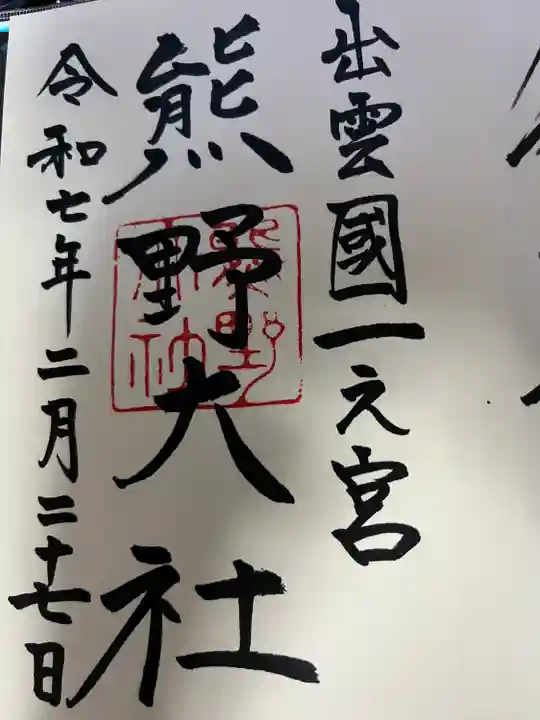 出雲國一之宮
熊野大社
熊野大社
令和七年二月二十七日